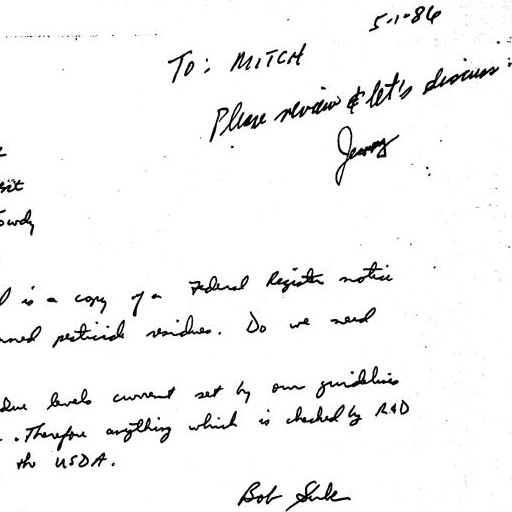 5-1-86
To: MITCH
Please review & let's discuss
Jerry
is a copy of a Federal Register notice
pesticide residues. Do we need
levels current set by our guidelines
. Therefore anything which is checked by R&D
the USDA.
Bob